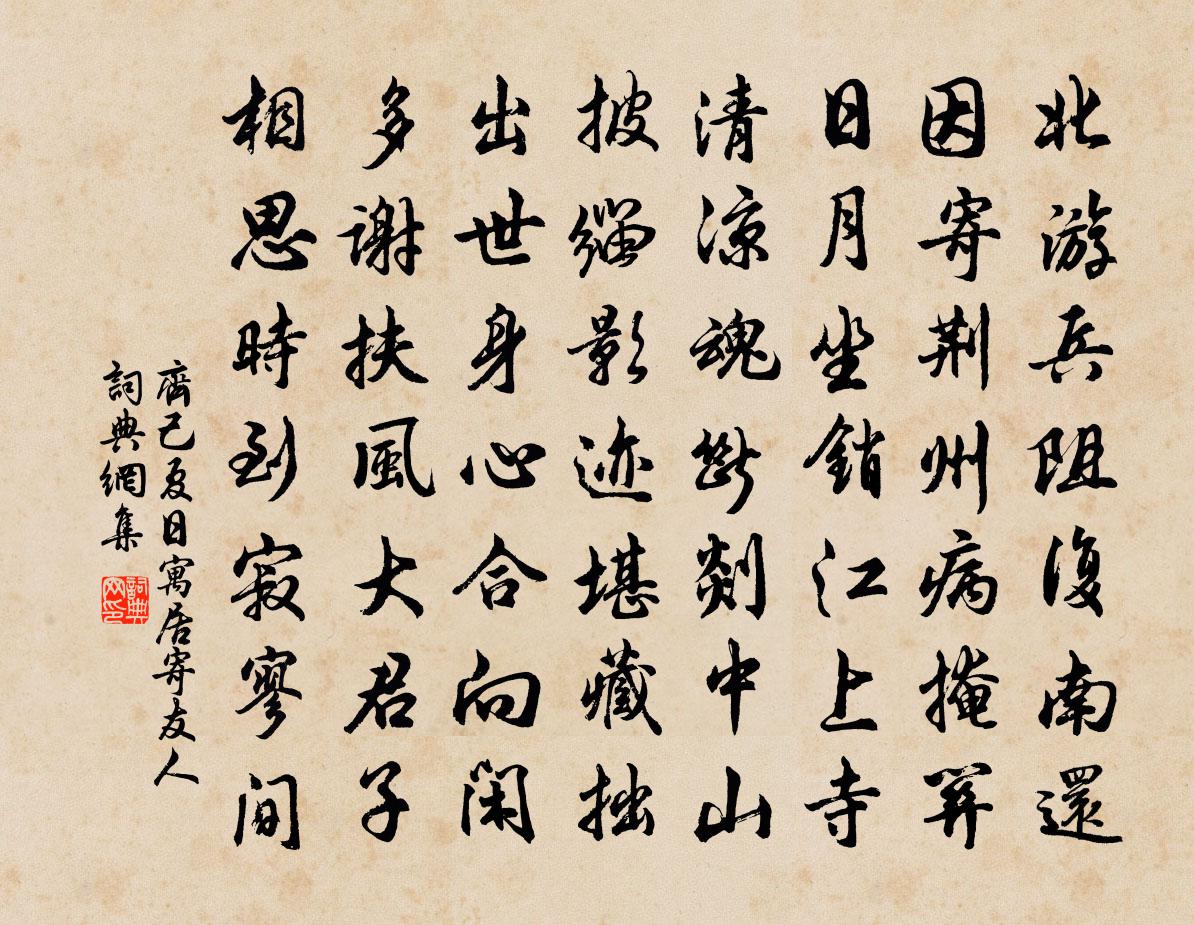 北游兵阻復南還
因寄荆州病掩關
日月坐銷江上寺
清涼魂斷剡中山
披緇影迹堪藏拙
出世身心合向閑
多謝扶風大君子
相思時到寂寥間
齊己夏日寓居寄友人
詞典網集
詞典网印